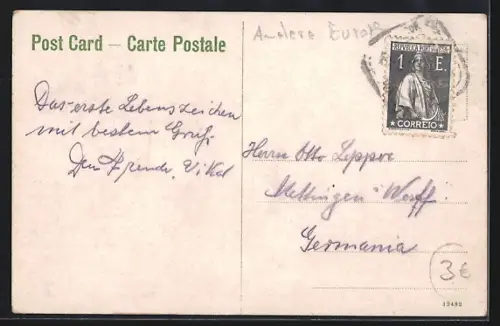 Post Card – Carte Postale
Andere Europa
REPUBLICA PORTUGUESA
1 E.
CORREIO
Das erste Lebenszeichen
mit bestem Gruß.
Dein Freund
Herrn Otto
Mettingen Westf.
Germania
3€
13492